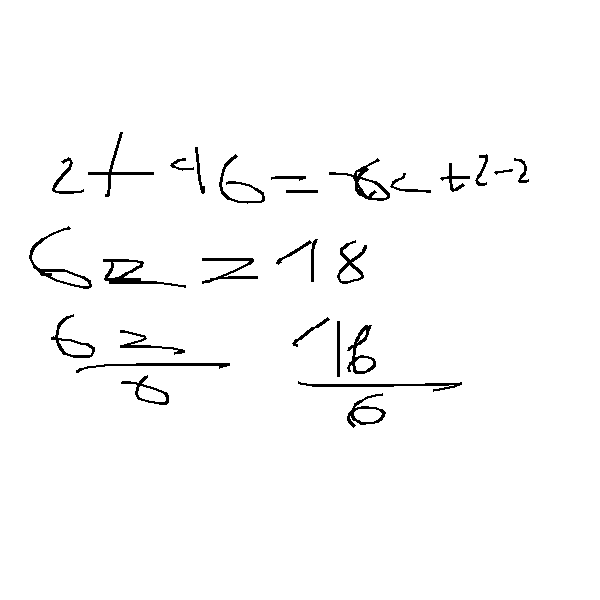 2+16=6z+2-2
6z=18
6z/6 18/6